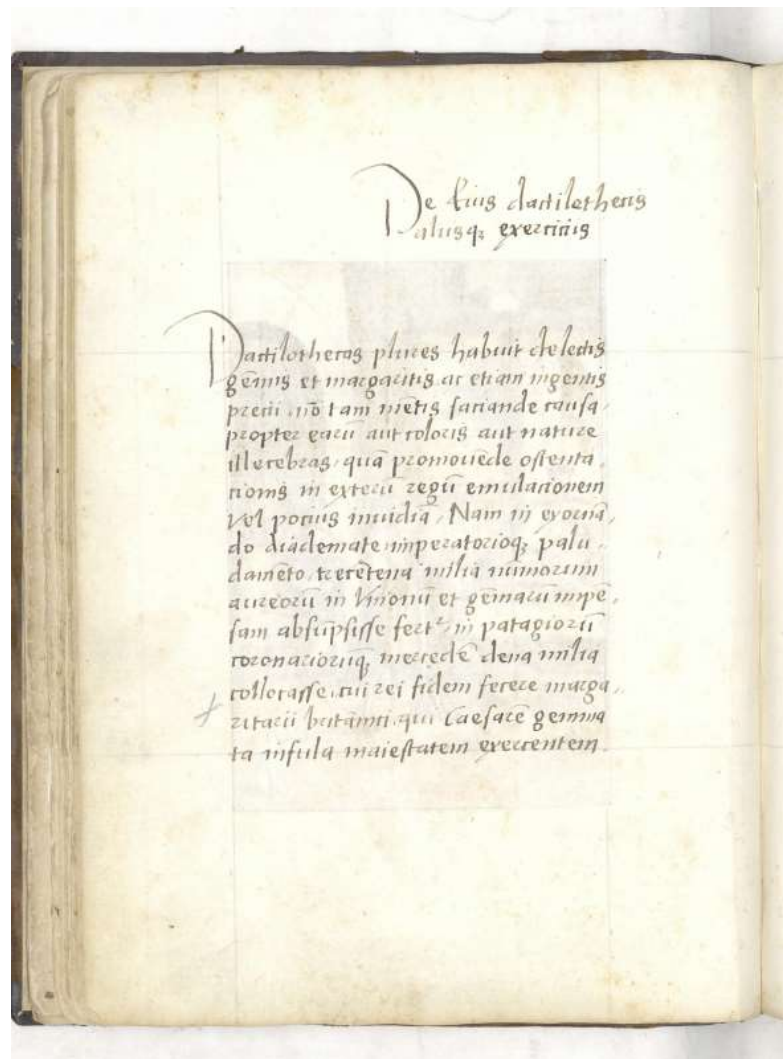 De Eius dactilothecis
aliisq; exerciciis
Dactilothecas plures habuit delectis
gēmis et margaritis ac etiam ingentis
precii. nō tam mētis saciande causa
propter earū aut coloris aut nature
illecebras, quā promovēde ostenta
tionis in exterū regū emulacionem
vel pocius invidiā, Nam in exornā
do diademate imperatorioq; palu
damēto, trecētena milia numorum
aureorū in Vnionū et gēmarū impē
sam absūpsisse fert², in patagiorū
coronariorūq; mercedē dena milia
collocasse, cui rei fidem fecere marga
ritarii britānici, qui Caesarē gemma
ta infula maiestatem exercentem